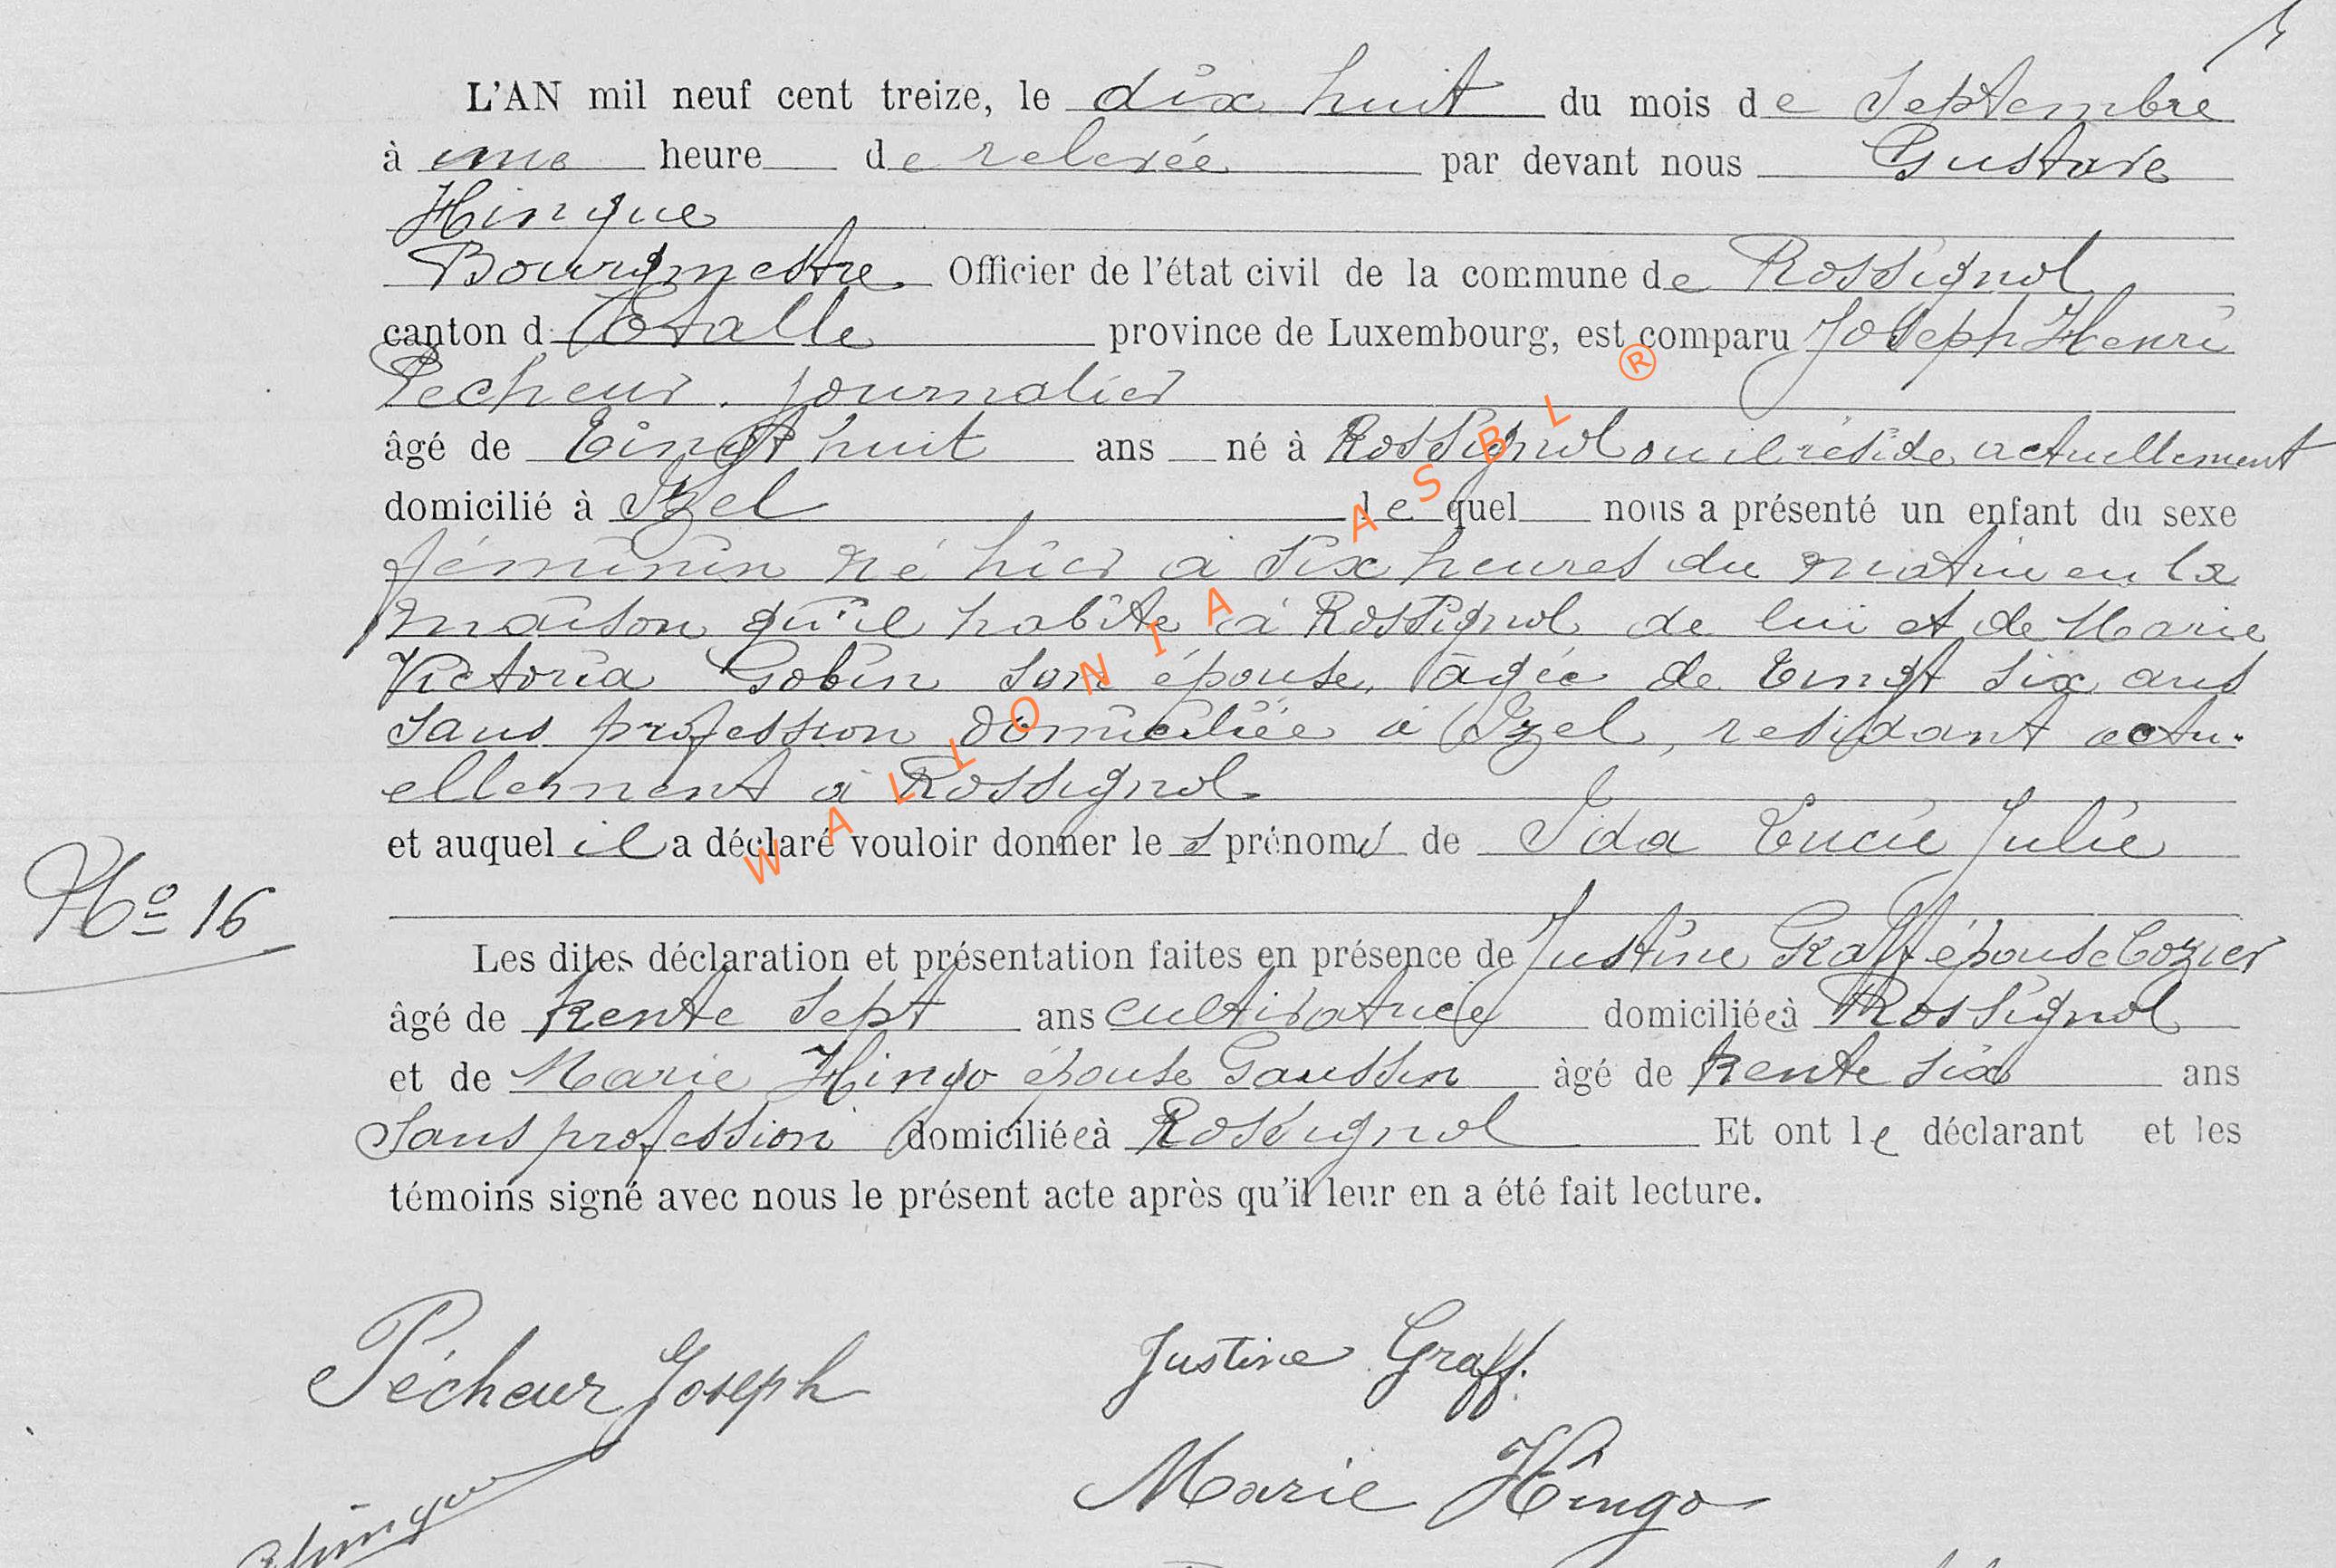 L'AN mil neuf cent treize, le dix huit du mois de Septembre
à une heure de relevée par devant nous Gustave
Hinque
Bourgmestre Officier de l'état civil de la commune de Rossignol
canton d'Etalle province de Luxembourg, est comparu Joseph Henri
Pecheur, journalier
âgé de Vingt huit ans né à Rossignol où il réside actuellement
domicilié à Izel lequel nous a présenté un enfant du sexe
féminin né hier à six heures du matin en la
maison qu'il habite à Rossignol de lui et de Marie
Victoria Gobin son épouse, âgée de Vingt six ans
sans profession domiciliée à Izel, residant actu-
ellement à Rossignol
et auquel il a déclaré vouloir donner les prénoms de Ida Lucie Julie
No 16
Les dites déclaration et présentation faites en présence de Justine Graff épouse Cozier
âgé de trente sept ans cultivatrice domiciliée à Rossignol
et de Marie Hingo épouse Gaussin âgé de trente six ans
Sans profession domiciliée à Rossignol Et ont le déclarant et les
témoins signé avec nous le présent acte après qu'il leur en a été fait lecture.
Pécheur Joseph
Justine Graff.
Marie Hingo
WALLONIA ASBL ®